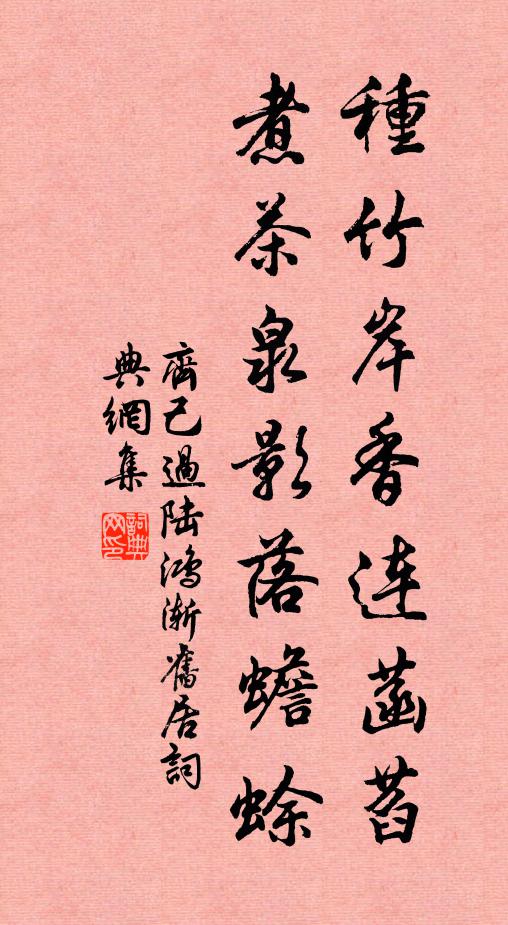 種竹岸香連菡萏
煮茶泉影落蟾蜍
齊己過陆鸿渐舊居詞
典網集
詞典网印